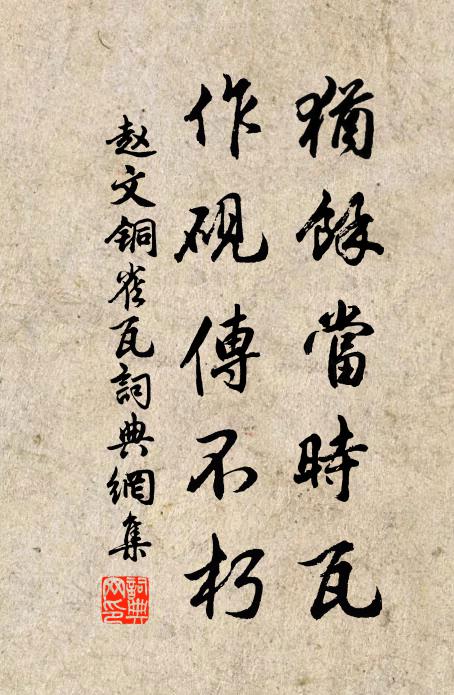 猶餘當時瓦
作硯傳不朽
赵文铜雀瓦詞典網集
詞典网印